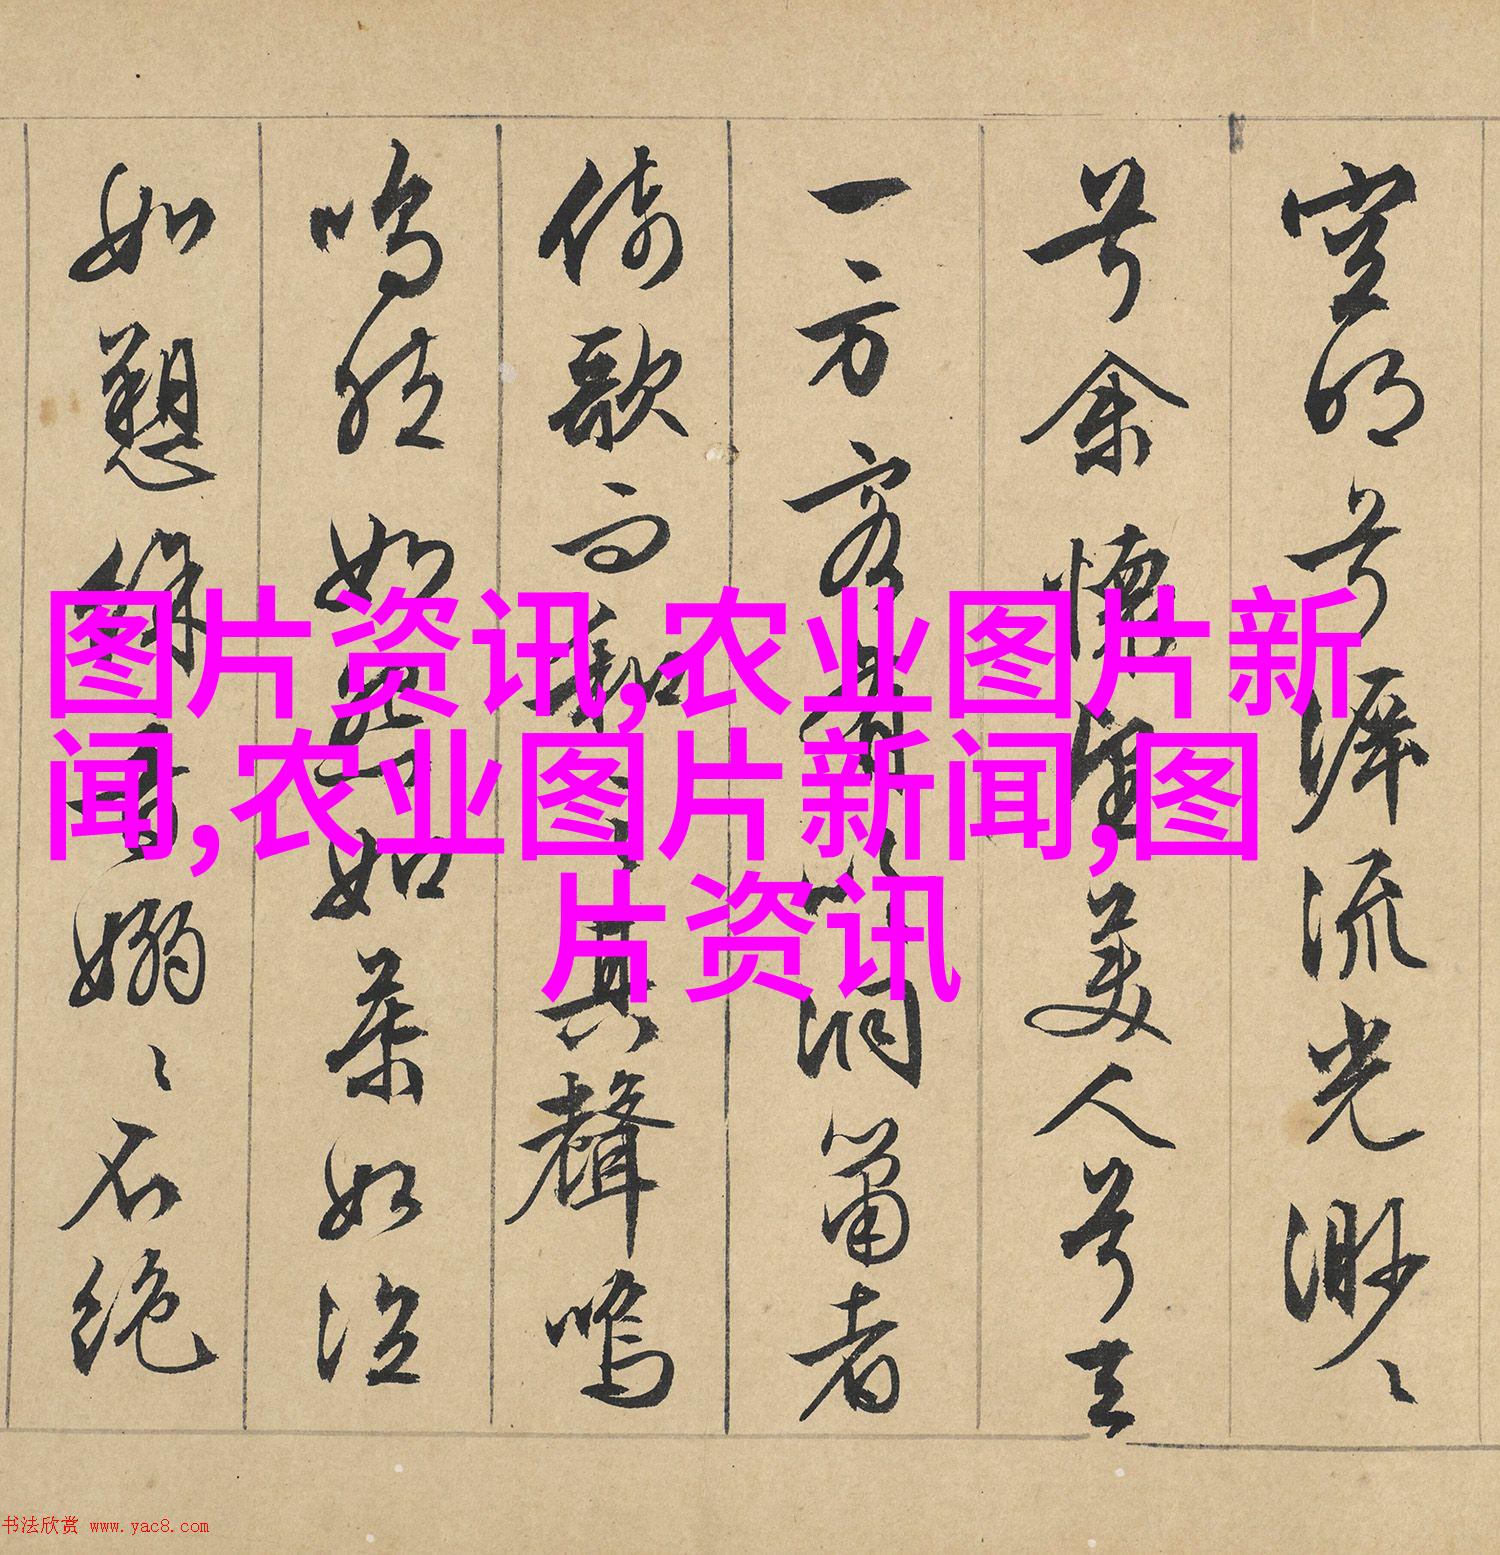 空明兮流光渺〻
兮余懷望美人兮天
一方客有吹洞簫者
倚歌而和之其聲嗚
嗚然如怨如慕如泣
如愬餘音嫋〻不絕
图片资讯,农业图片新
闻,农业图片新闻,图
片资讯
书法欣赏 www.yac8.com